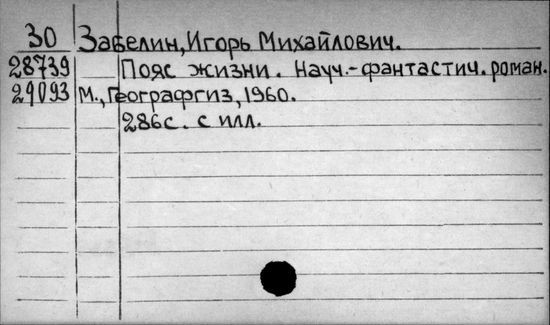 30 Забелин, Игорь Михайлович.
28739 Пояс жизни. Науч.-фантастич. роман.
29093 М., Географгиз, 1960.
286с. с илл.